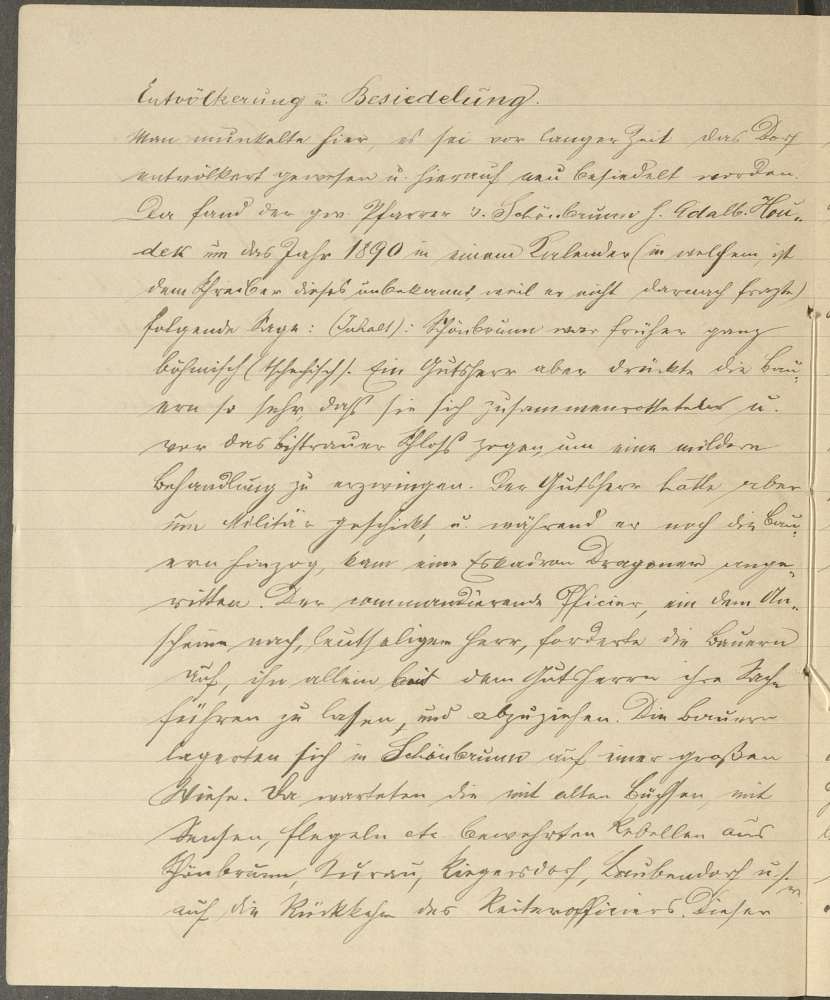 Entvölkerung u. Besiedelung.
Man munkelte hier, es sei vor langer Zeit das Dorf
entvölkert gewesen u. hierauf neu besiedelt worden.
Da fand der gew. Pfarrer v. Schönbrunn H. Adalb. Hou-
dek um das Jahr 1890 in einem Kalender (in welchem, ist
dem Schreiber dieses unbekannt, weil er nicht darnach fragte)
folgende Sage: (Inhalt): Schönbrunn war früher ganz
böhmisch (tschechisch). Ein Gutsherr aber drückte die Bau-
ern so sehr, daß sie sich zusammenrotteten u.
vor das Bistrauer Schloß zogen, um eine mildere
Behandlung zu erzwingen. Der Gutsherr hatte aber
um Militär geschickt, u. während er noch die Bau-
ern hinzog, kam eine Eskadron Dragoner ange-
ritten. Der commandierende Officier, ein dem An-
scheine nach, leutseliger Herr, forderte die Bauern
auf, ihn allein bei dem Gutsherrn ihre Sache
führen zu lassen, und abzuziehen. Die Bauern
lagerten sich in Schönbrunn auf einer großen
Wiese. Da warteten die mit alten Büchsen, mit
Sensen, Flegeln etc. bewehrten Rebellen aus
Schönbrunn, Kurau, Riegersdorf, Laubendorf u.s.w.
auf die Rückkehr des Reiterofficiers. Dieser